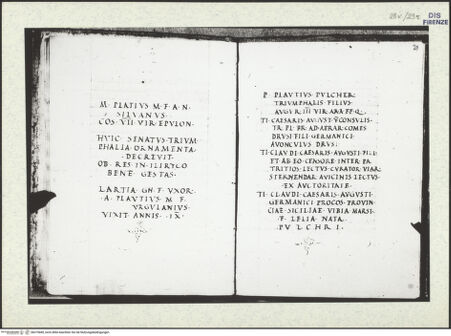 28v/29r
DIS
FIRENZE
29
M · PLATIVS M · F · A · N ·
SILVANVS
COS · VII VIR EPVLON ·
HVIC SENATVS TRIVM
PHALIA ORNAMENTA
DECREVIT
OB · RES · IN ILIRYCO
BENE GESTAS ·
LARTIA · GN · F · VXOR ·
A · PLAVTIVS M F ·
VRGVLANIVS
VIXIT ANNIS · IX ·
P · PLAVTIVS PVLCHER
TRIVMPHALIS FILIVS
AVGVR III VIR
TI · CAESARIS AVGVST
TR · PL · PR · AD AERAR · COMES
DRVSI FILI GERMANICI
AVONCVLVS DRVSI
TI · CLAVDI CAESARIS AVGVSTI FILI
ET AB EO CENSORE INTER PA
TRITIOS LECTVS CVRATOR VIAR
STERNENDAR AVICINIS LECTVS
EX AVCTORITATE
TI · CLAVDI CAESARIS AVGVSTI
GERMANICI PROCOS PROVIN
CIAE SICILIAE · VIBIA MARSI
F · LELIA NATA
PVLCHRI ·